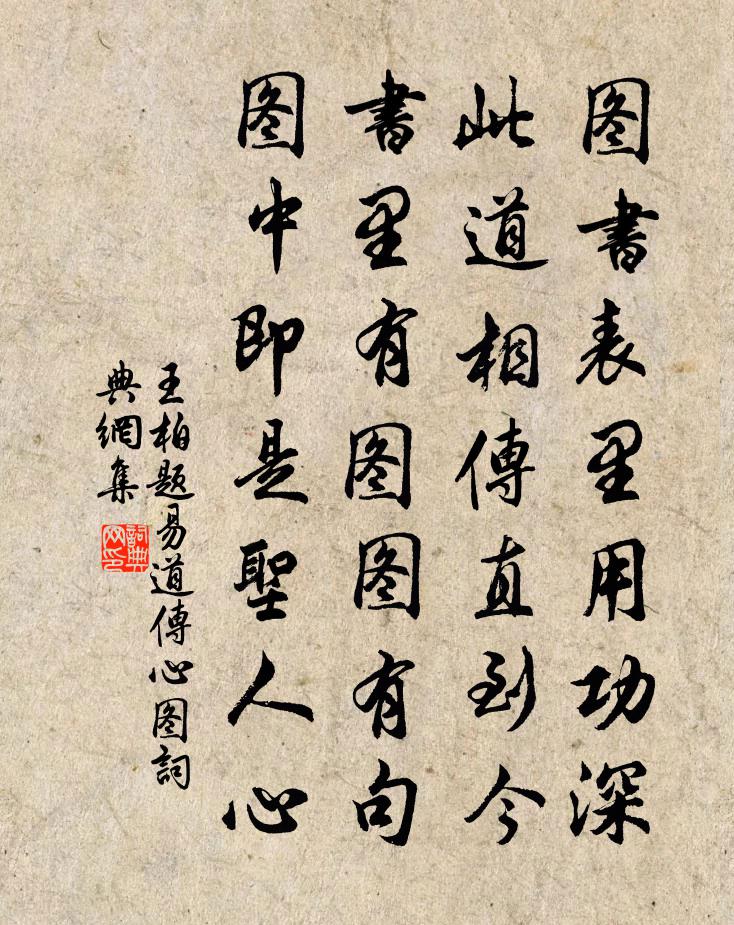 图書表里用功深
此道相傳直到今
書里有图图有句
图中即是聖人心
王柏题易道傳心图詞
典網集
詞典
网印